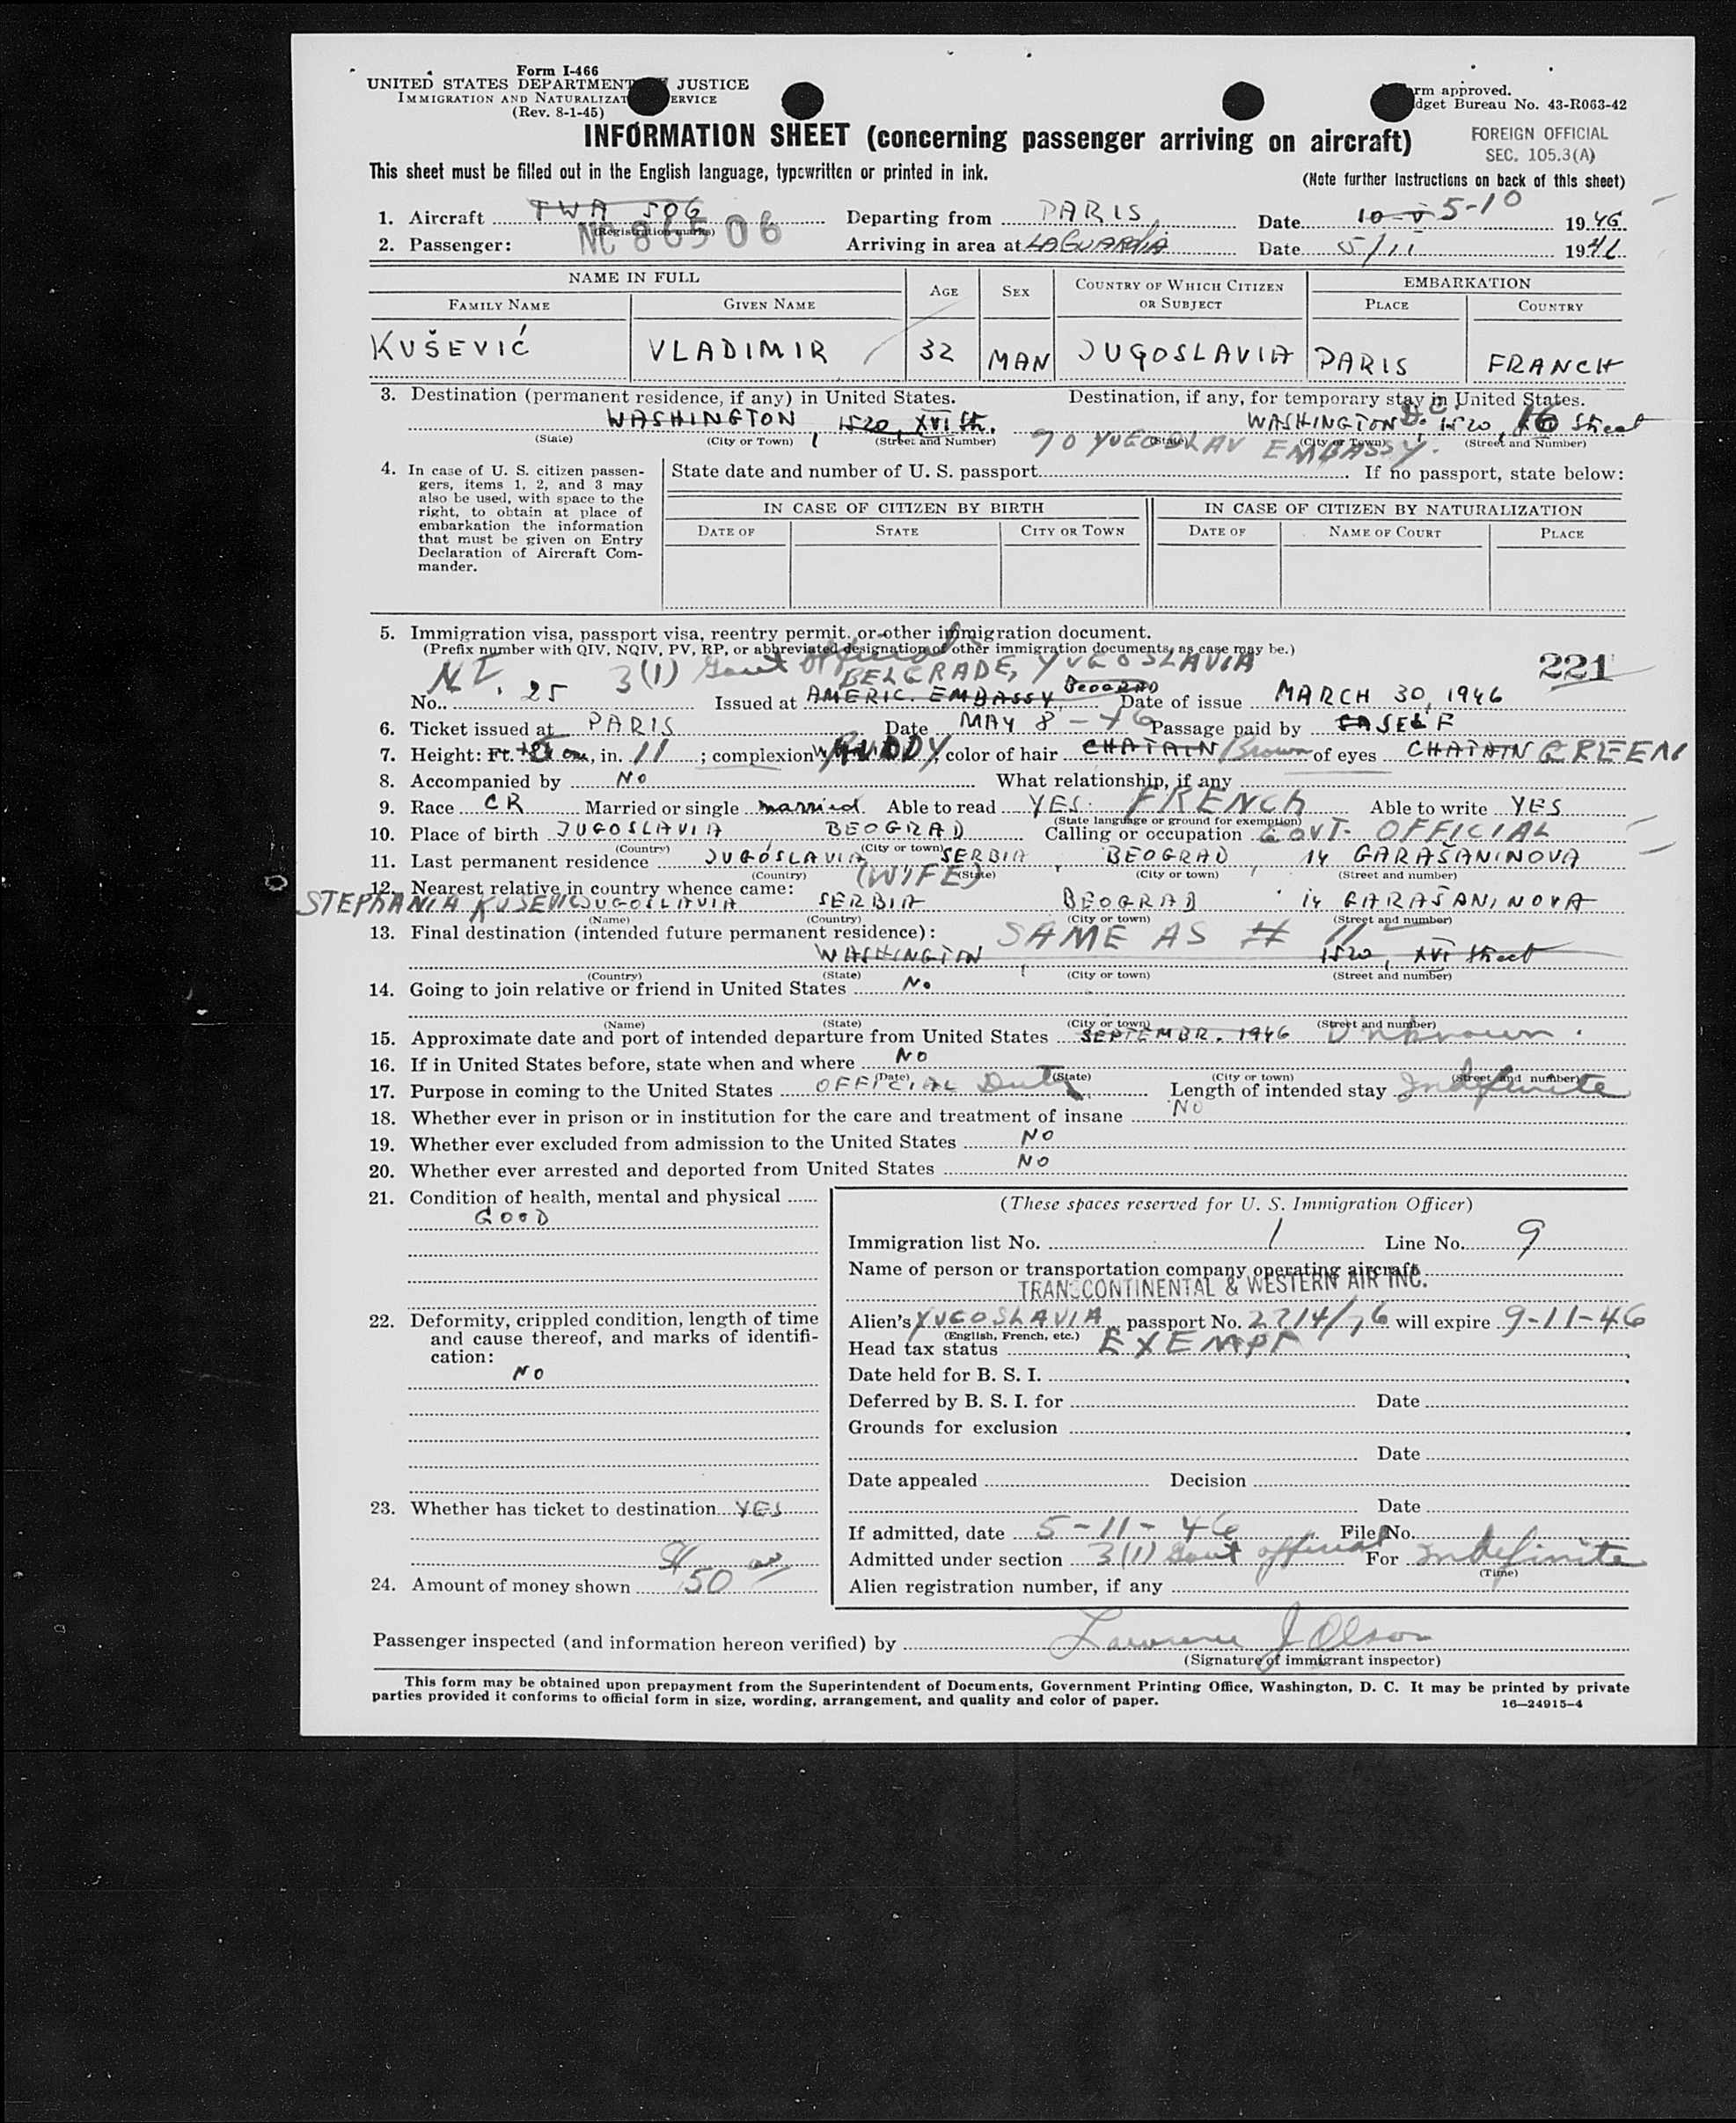 Form I-466
UNITED STATES DEPARTMENT JUSTICE
IMMIGRATION AND NATURALIZAT ERVICE
(Rev. 8-1-45)
rm approved.
dget Bureau No. 43-R063-42
INFORMATION SHEET (concerning passenger arriving on aircraft)
FOREIGN OFFICIAL
SEC. 105.3(A)
This sheet must be filled out in the English language, typewritten or printed in ink.
(Note further instructions on back of this sheet)
1. Aircraft TWA 506 Departing from PARIS Date 10-V 5-10 1946
(Registration marks)
NC 86506
2. Passenger: Arriving in area at LA GUARDIA Date 5/11 1946
NAME IN FULL AGE SEX COUNTRY OF WHICH CITIZEN OR SUBJECT EMBARKATION
FAMILY NAME GIVEN NAME PLACE COUNTRY
KUŠEVIĆ VLADIMIR 32 MAN JUGOSLAVIA PARIS FRANCH
3. Destination (permanent residence, if any) in United States. Destination, if any, for temporary stay in United States.
WASHINGTON, 1520, XVI Str. WASHINGTON D.C. 1520, 16 Street
(State) (City or Town) (Street and Number) (State) (City or Town) (Street and Number)
YUGOSLAV EMBASSY.
4. In case of U. S. citizen passen-
gers, items 1, 2, and 3 may
also be used, with space to the
right, to obtain at place of
embarkation the information
that must be given on Entry
Declaration of Aircraft Com-
mander.
State date and number of U. S. passport If no passport, state below:
IN CASE OF CITIZEN BY BIRTH IN CASE OF CITIZEN BY NATURALIZATION
DATE OF STATE CITY OR TOWN DATE OF NAME OF COURT PLACE
5. Immigration visa, passport visa, reentry permit, or other immigration document.
(Prefix number with QIV, NQIV, PV, RP, or abbreviated designation of other immigration documents, as case may be.)
3(1) Govt Official BELGRADE, YUGOSLAVIA 221
No. 25 Issued at AMERIC. EMBASSY, BEOGRAD Date of issue MARCH 30, 1946
6. Ticket issued at PARIS Date MAY 8 - 46 Passage paid by SELF
7. Height: Ft. 5, in. 11; complexion RUDDY, color of hair CHATAIN Brown of eyes CHATAIN GREEN
8. Accompanied by NO What relationship, if any
9. Race CR Married or single married Able to read YES FRENCH Able to write YES
(State language or ground for exemption)
10. Place of birth JUGOSLAVIA BEOGRAD Calling or occupation GOVT. OFFICIAL
(Country) (City or town)
11. Last permanent residence JUGOSLAVIA, SERBIA, BEOGRAD, 14 GARAŠANINOVA
(Country) (State) (City or town) (Street and number)
12. Nearest relative in country whence came: (WIFE)
STEPHANIA KUSEVIC JUGOSLAVIA SERBIA BEOGRAD 14 GARAŠANINOVA
(Name) (Country) (City or town) (Street and number)
13. Final destination (intended future permanent residence): SAME AS # 11
WASHINGTON, 1520, XVI Street
(Country) (State) (City or town) (Street and number)
14. Going to join relative or friend in United States No
(Name) (State) (City or town) (Street and number)
15. Approximate date and port of intended departure from United States SEPTEMBR. 1946 Unknown.
16. If in United States before, state when and where NO
(Date) (State) (City or town) (Street and number)
17. Purpose in coming to the United States OFFICIAL Duty Length of intended stay Indefinite
18. Whether ever in prison or in institution for the care and treatment of insane NO
19. Whether ever excluded from admission to the United States NO
20. Whether ever arrested and deported from United States NO
21. Condition of health, mental and physical
GOOD
22. Deformity, crippled condition, length of time
and cause thereof, and marks of identifi-
cation:
NO
23. Whether has ticket to destination YES
24. Amount of money shown $50 00
(These spaces reserved for U. S. Immigration Officer)
Immigration list No. 1 Line No. 9
Name of person or transportation company operating aircraft
TRANSCONTINENTAL & WESTERN AIR INC.
Alien's YUGOSLAVIA passport No. 2714/76 will expire 9-11-46
(English, French, etc.)
Head tax status EXEMPT
Date held for B. S. I.
Deferred by B. S. I. for Date
Grounds for exclusion
Date
Date appealed Decision
Date
If admitted, date 5-11-46 File No.
Admitted under section 3(1) Govt official For Indefinite
(Time)
Alien registration number, if any
Passenger inspected (and information hereon verified) by Lawrence J Olson
(Signature of immigrant inspector)
This form may be obtained upon prepayment from the Superintendent of Documents, Government Printing Office, Washington, D. C. It may be printed by private
parties provided it conforms to official form in size, wording, arrangement, and quality and color of paper.
16—24915-4